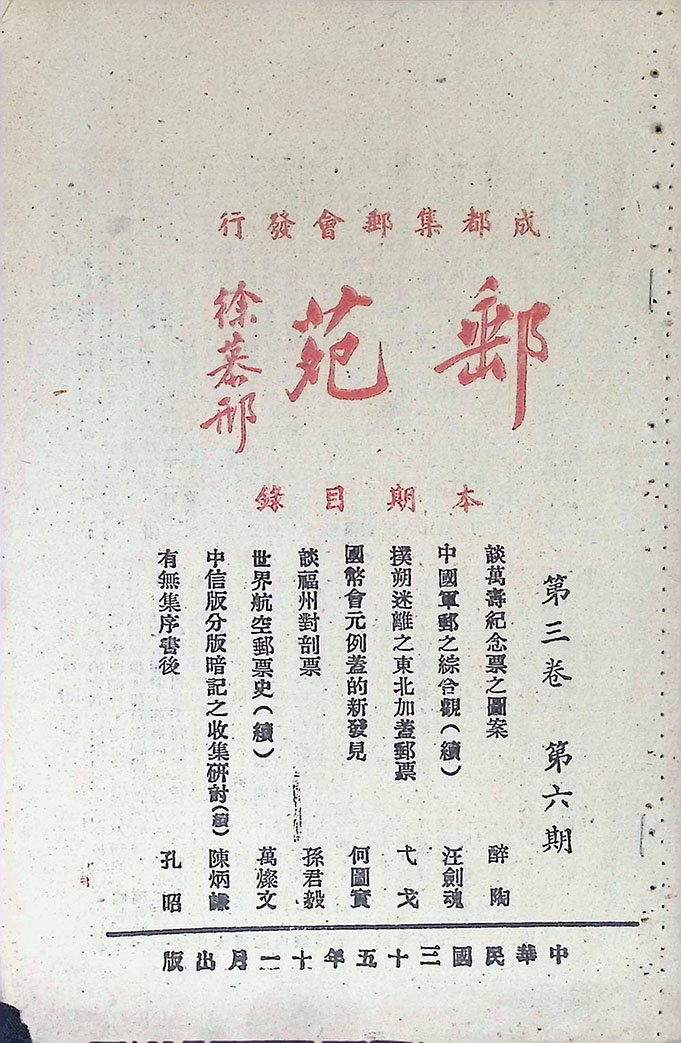 成都集郵會發行
郵苑
徐慕邢
本期目錄
第三卷 第六期
談萬壽紀念票之圖案 醉陶
中國軍郵之綜合觀(續) 汪劍魂
撲朔迷離之東北加蓋郵票 弋戈
國幣會元例蓋的新發見 何圖寳
談福州對剖票 孫君毅
世界航空郵票史(續) 萬燦文
中信版分版暗記之收集研討(續) 陳炳鏞
有無集序書後 孔昭
中華民國三十五年十一月出版